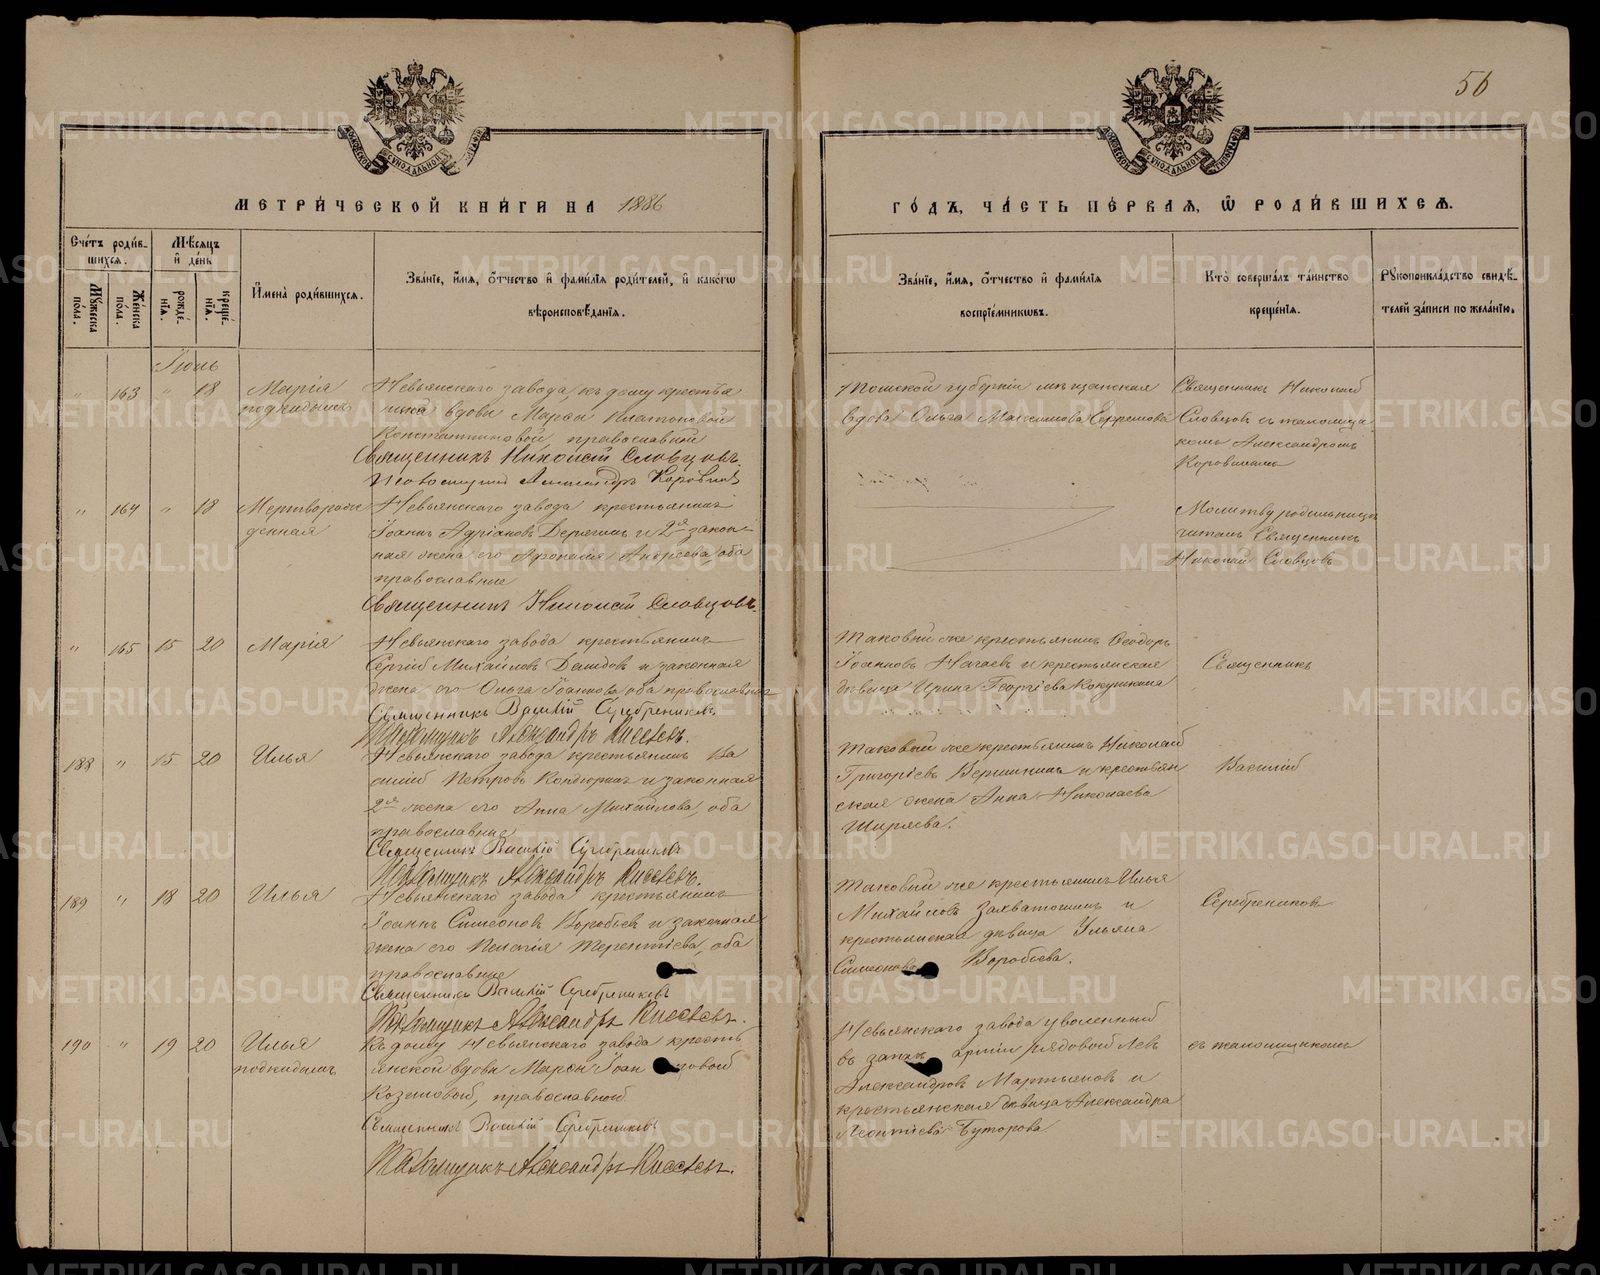 56
МОСКОВСКОЙ СѴНОДАЛЬНОЙ ТИПОГРАФІИ
МОСКОВСКОЙ СѴНОДАЛЬНОЙ ТИПОГРАФІИ
МЕТРИ́ЧЕСКОЙ КНИ́ГИ НА 1886
ГО́ДЪ, ЧА́СТЬ ПЕ́РВАЯ, Ѡ҆ РОДИ́ВШИХСѦ.
Сче́тъ роди́в-
шихсѧ.
Мꙋ́жеска по́ла.
Же́нска по́ла.
Мѣ́сѧцъ и҆ де́нь
рожде́-нїѧ.
креще́-нїѧ.
И҆мена̀ роди́вшихсѧ.
Зва́нїе, и҆́мѧ, ѻ҆́тчество и҆ фами́лїѧ роди́телей, и҆ како́гѡ
вѣроисповѣ́данїѧ.
Зва́нїе, и҆́мѧ, ѻ҆́тчество и҆ фами́лїѧ
воспрїе́мникѡвъ.
Кто̀ соверша́лъ та́инство
креще́нїѧ.
Рꙋкоприкла́дство свидѣ́-
телей за́писи по жела́нїю.
Іюнь
" 163 " 18 Марія
подкидышъ
Невьянскаго завода, къ дому крестья
нской вдовы Марѳы Платоновой
Константиновой, православной
Священникъ Николай Словцовъ.
Псаломщикъ Александръ Коровинъ
Томской губерніи мѣщанская
вдова Ольга Максимова Ефремова
Священникъ Николай
Словцовъ съ псаломщи
комъ Александромъ
Коровинымъ
" 164 " 18 Мертворож
денная
Невьянскаго завода крестьянинъ
Іоаннъ Адріановъ и 2я закон-
ная жена его Андреева, оба
православные
Священникъ Николай Словцовъ.
Молитву родильницѣ
читалъ Священникъ
Николай Словцовъ
" 165 15 20 Марія
Невьянскаго завода крестьянинъ
Сергій Михайловъ Давыдовъ и законная
жена его Ольга Іоаннова, оба православные
Священникъ Василій Серебрениковъ
Псаломщикъ Александръ Киселевъ.
Таковой же крестьянинъ Ѳеодоръ
Іоанновъ Нагаевъ и крестьянская
дѣвица Ирина Георгіева Кокушкина
Священникъ
188 " 15 20 Илья
Невьянскаго завода крестьянинъ Ва
силій Петровъ и законная
2я жена его Анна Михайлова, оба
православные
Священникъ Василій Серебрениковъ
Псаломщикъ Александръ Киселевъ.
Таковой же крестьянинъ Николай
Григорьевъ Вершининъ и крестьян
ская жена Анна Николаева
Ширяева.
Василій
189 " 18 20 Илья
Невьянскаго завода крестьянинъ
Іоаннъ Симеоновъ Воробьевъ и законная
жена его Пелагія Терентіева, оба
православные
Священникъ Василій Серебрениковъ
Псаломщикъ Александръ Киселевъ.
Таковой же крестьянинъ Илья
Михайловъ Захватошинъ и
крестьянская дѣвица Ульяна
Симеонова Воробьева.
Серебрениковъ
190 " 19 20 Илья
подкидышъ
Къ дому Невьянскаго завода кресть
янской вдовы Марѳы Іоанновой
Козановой, православной
Священникъ Василій Серебрениковъ
Псаломщикъ Александръ Киселевъ.
Невьянскаго завода уволенный
въ запасъ арміи рядовой Левъ
Александровъ Мартьяновъ и
крестьянская дѣвица Александра
Леонтіева Буторова
съ псаломщикомъ
METRIKI.GASO-URAL.RU